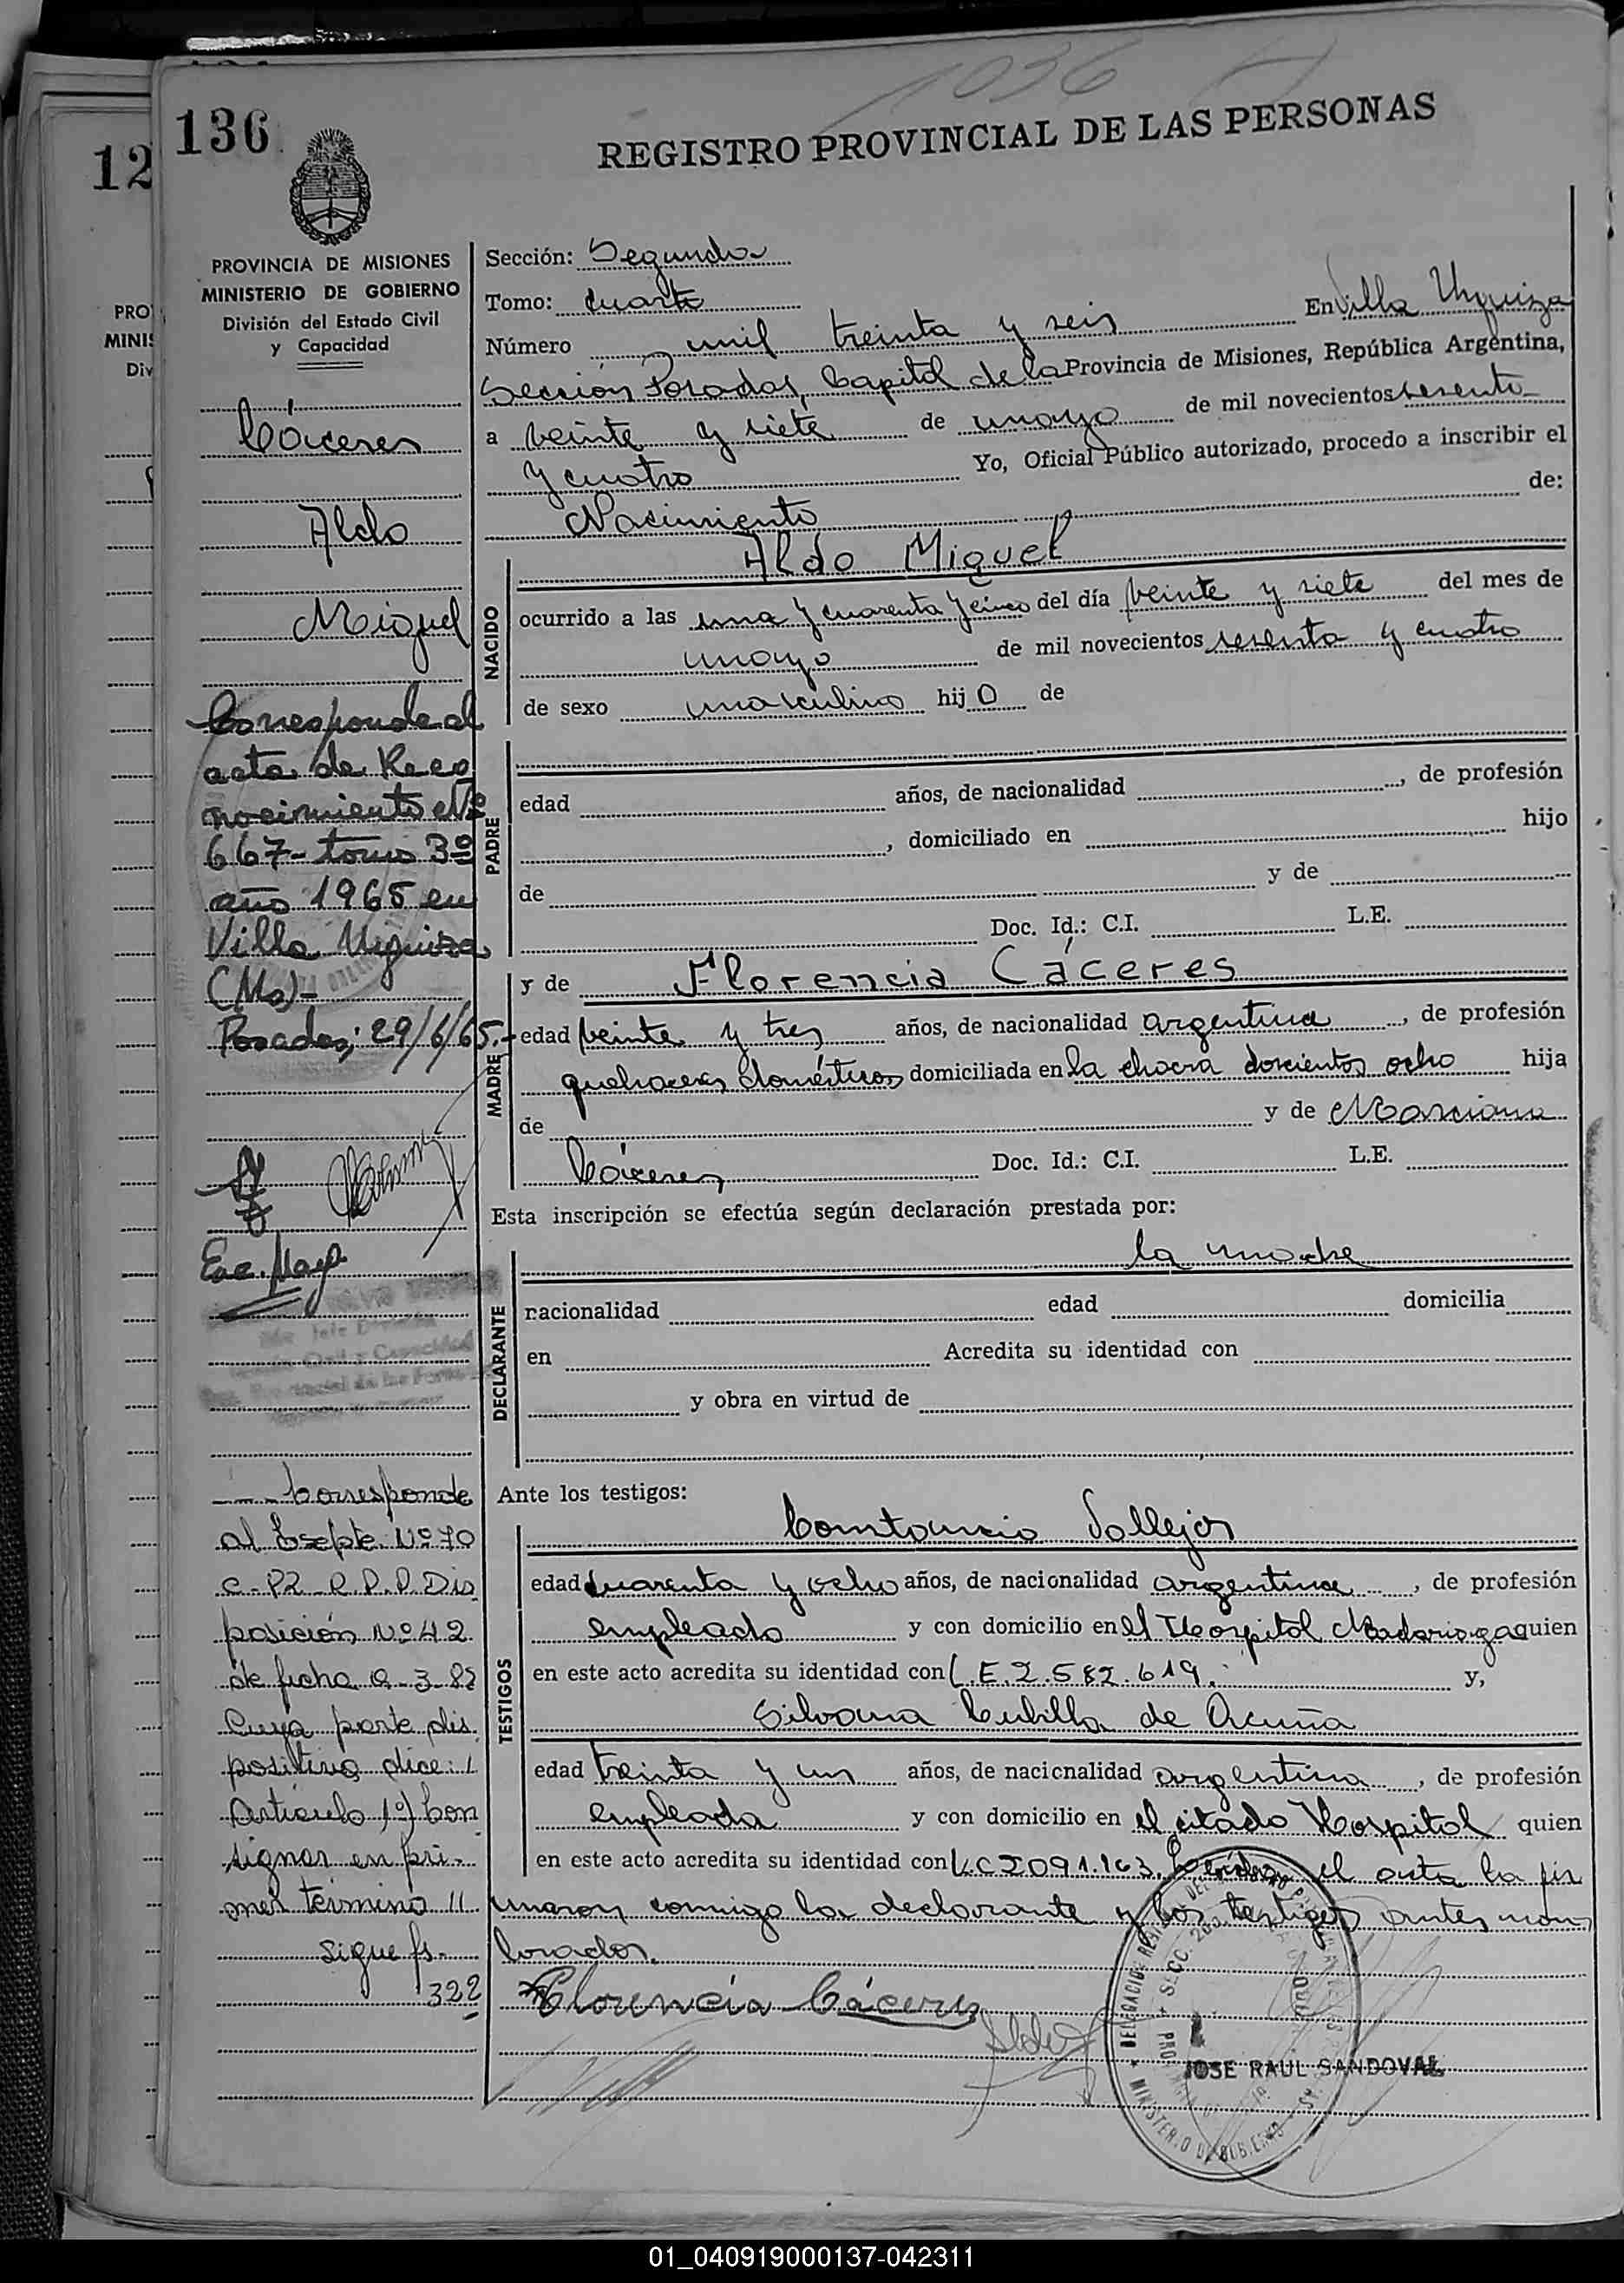 1036
136
12
REGISTRO PROVINCIAL DE LAS PERSONAS
PROVINCIA DE MISIONES
MINISTERIO DE GOBIERNO
División del Estado Civil
y Capacidad
PRO
MINIS
Div
Cáceres
Aldo
Miguel
Corresponde al
acta de Reco
nocimiento Nº
667- tomo 3º
año 1965 en
Villa Urquiza
(Ms)-
Posadas, 29/6/65.-
Enc. Mayo
Corresponde
al Expte. Nº 70
C-82 R.P.P. Dis
posición Nº 42
de fecha 9-3-82
Cuya parte dis
positiva dice: /
Artículo 1º) Con
signar en pri-
mer término //
Sigue fs.
322
Sección: Segunda
Tomo: Cuarto
Número mil treinta y seis En Villa Urquiza
Sección Posadas, Capital de la Provincia de Misiones, República Argentina,
a veinte y siete de mayo de mil novecientos sesenta
y cuatro Yo, Oficial Público autorizado, procedo a inscribir el
Nacimiento de:
Aldo Miguel
NACIDO
ocurrido a las una y cuarenta y cinco del día veinte y siete del mes de
mayo de mil novecientos sesenta y cuatro
de sexo masculino hijo de
PADRE
edad años, de nacionalidad , de profesión
, domiciliado en hijo
de y de
Doc. Id.: C.I. L.E.
MADRE
y de Florencia Cáceres
edad veinte y tres años, de nacionalidad argentina , de profesión
quehaceres domésticos domiciliada en la chacra doscientos ocho hija
de y de Marciana
Cáceres Doc. Id.: C.I. L.E.
Esta inscripción se efectúa según declaración prestada por:
la madre
DECLARANTE
nacionalidad edad domicilia
en Acredita su identidad con
y obra en virtud de
Ante los testigos:
TESTIGOS
Constancio Vallejos
edad cuarenta y ocho años, de nacionalidad argentina , de profesión
empleado y con domicilio en el Hospital Madariaga quien
en este acto acredita su identidad con L.E. 2.582.619. y,
Silvana Cubilla de Acuña
edad treinta y un años, de nacionalidad argentina , de profesión
empleada y con domicilio en el citado Hospital quien
en este acto acredita su identidad con L.C 2091.163. Leída el acta la fir
maron conmigo la declarante y los testigos antes nom
brados.
Florencia Cáceres
JOSE RAUL SANDOVAL
01_040919000137-042311